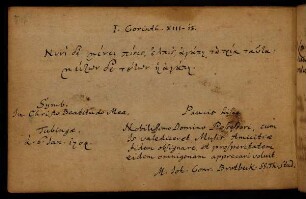 I. Corinth. XIII. 13.
Νυνὶ δὲ μένει πίςις, ἐλπὶς, ἀγάπη, τὰ τρία ταῦτα
μείζων δὲ τούτων ἡ ἀγάπη.
Symb.
In Christo Beatitudo Mea.
Tubingæ
d. Jan. 1702
Nobilissimo Domino Possessori, cum
ei valediceret, Mystæ Amicitiæ
fidem obsignare, et prosperitatem
eidem omnigenam apprecari voluit
M. Joh. Conr. Brotbeck. SS. Th. Stud.